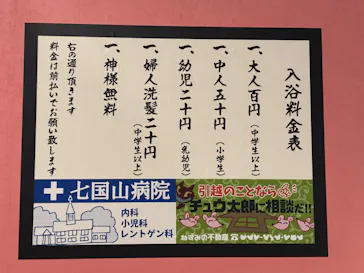 入浴料金表
一、大人百円（中学生以上）
一、中人五十円（小学生）
一、幼児二十円（乳幼児）
一、婦人洗髪二十円（中学生以上）
一、神様無料
右の通り頂きます
料金は前払いでお願い致します
七国山病院
内科
小児科
レントゲン科
引越のことなら
チュウ太郎に相談だ!!
ねずみの不動産